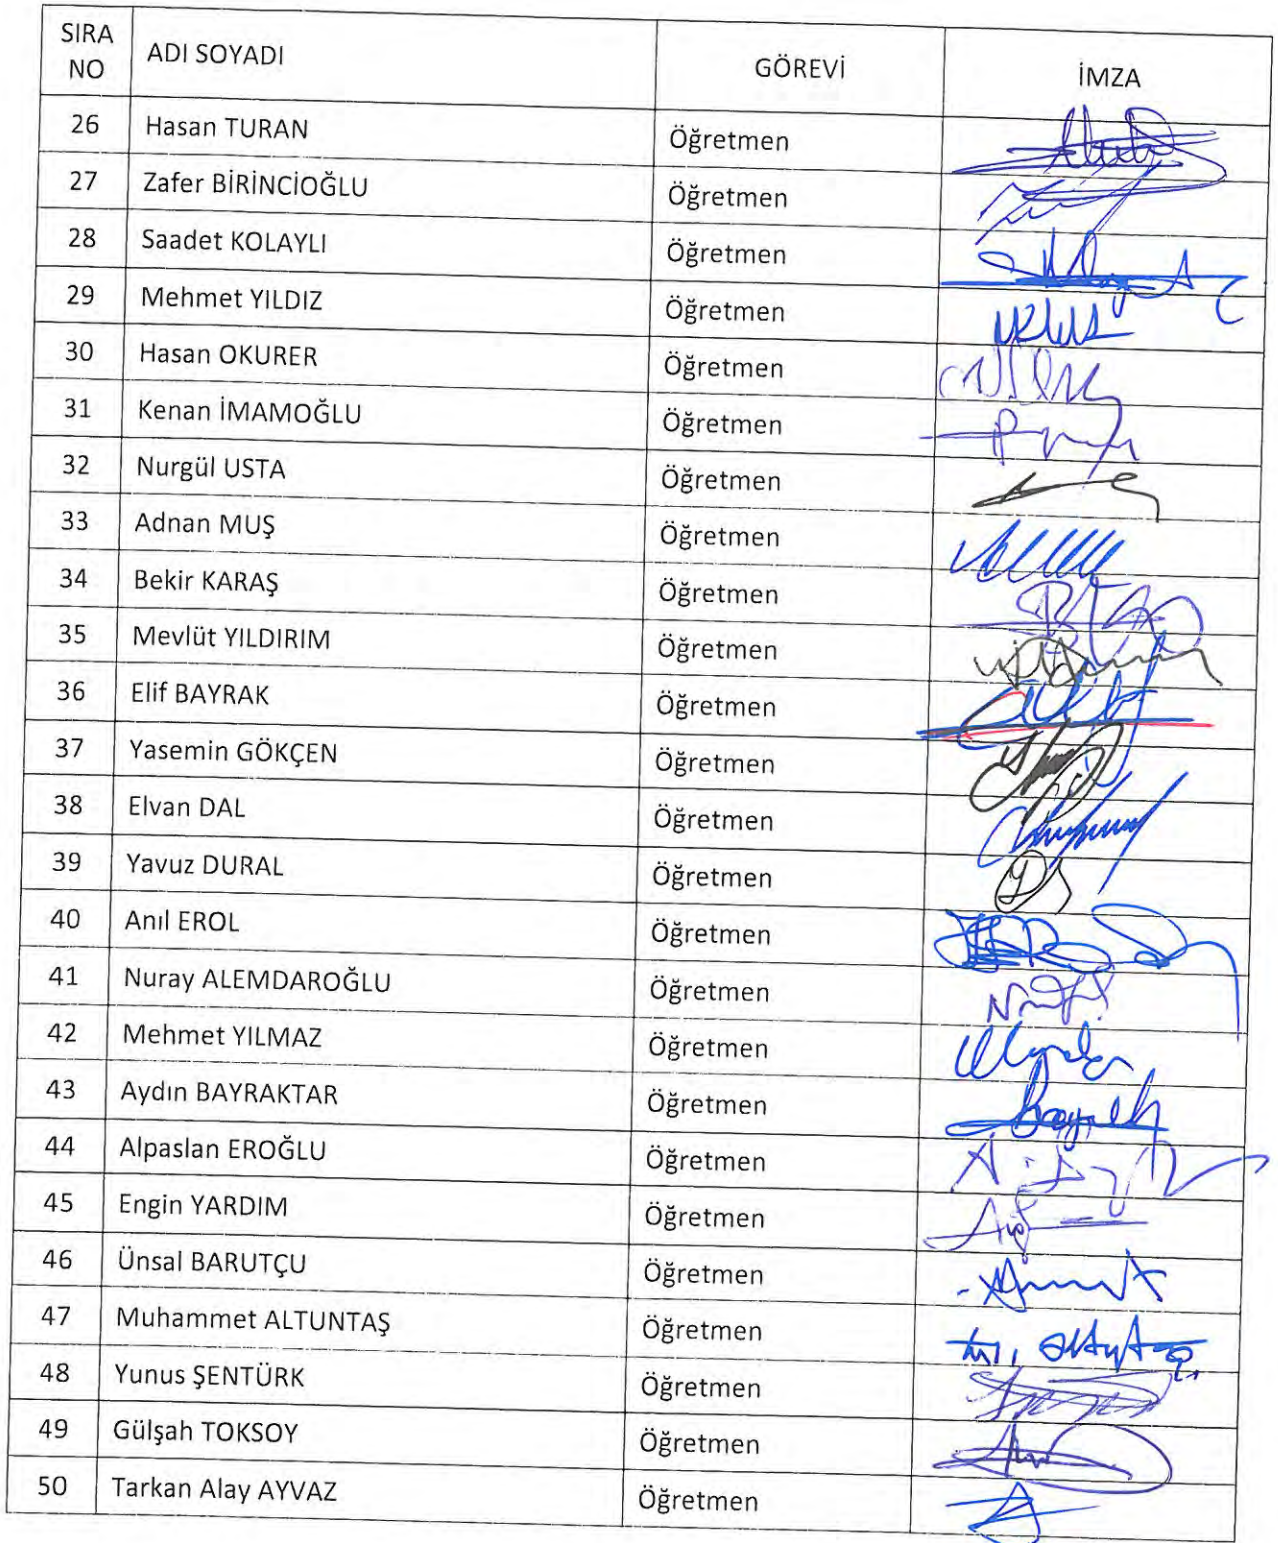 SIRA NO ADI SOYADI GÖREVİ İMZA
26 Hasan TURAN Öğretmen
27 Zafer BİRİNCİOĞLU Öğretmen
28 Saadet KOLAYLI Öğretmen
29 Mehmet YILDIZ Öğretmen
30 Hasan OKURER Öğretmen
31 Kenan İMAMOĞLU Öğretmen
32 Nurgül USTA Öğretmen
33 Adnan MUŞ Öğretmen
34 Bekir KARAŞ Öğretmen
35 Mevlüt YILDIRIM Öğretmen
36 Elif BAYRAK Öğretmen
37 Yasemin GÖKÇEN Öğretmen
38 Elvan DAL Öğretmen
39 Yavuz DURAL Öğretmen
40 Anıl EROL Öğretmen
41 Nuray ALEMDAROĞLU Öğretmen
42 Mehmet YILMAZ Öğretmen
43 Aydın BAYRAKTAR Öğretmen
44 Alpaslan EROĞLU Öğretmen
45 Engin YARDIM Öğretmen
46 Ünsal BARUTÇU Öğretmen
47 Muhammet ALTUNTAŞ Öğretmen
48 Yunus ŞENTÜRK Öğretmen
49 Gülşah TOKSOY Öğretmen
50 Tarkan Alay AYVAZ Öğretmen